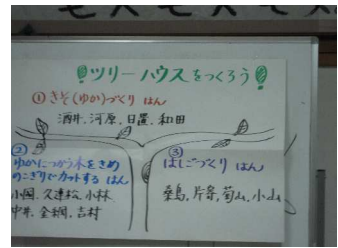 ツリーハウスをつくろう
① きそ(ゆか)づくり はん
酒井、河原、日置、和田
②
ゆかにつかう木をきめ
のこぎりでカットする はん
小国、久連松、小林
中井、金綱、吉村
③
はしごづくり はん
桑島、片寄、菊山、小山